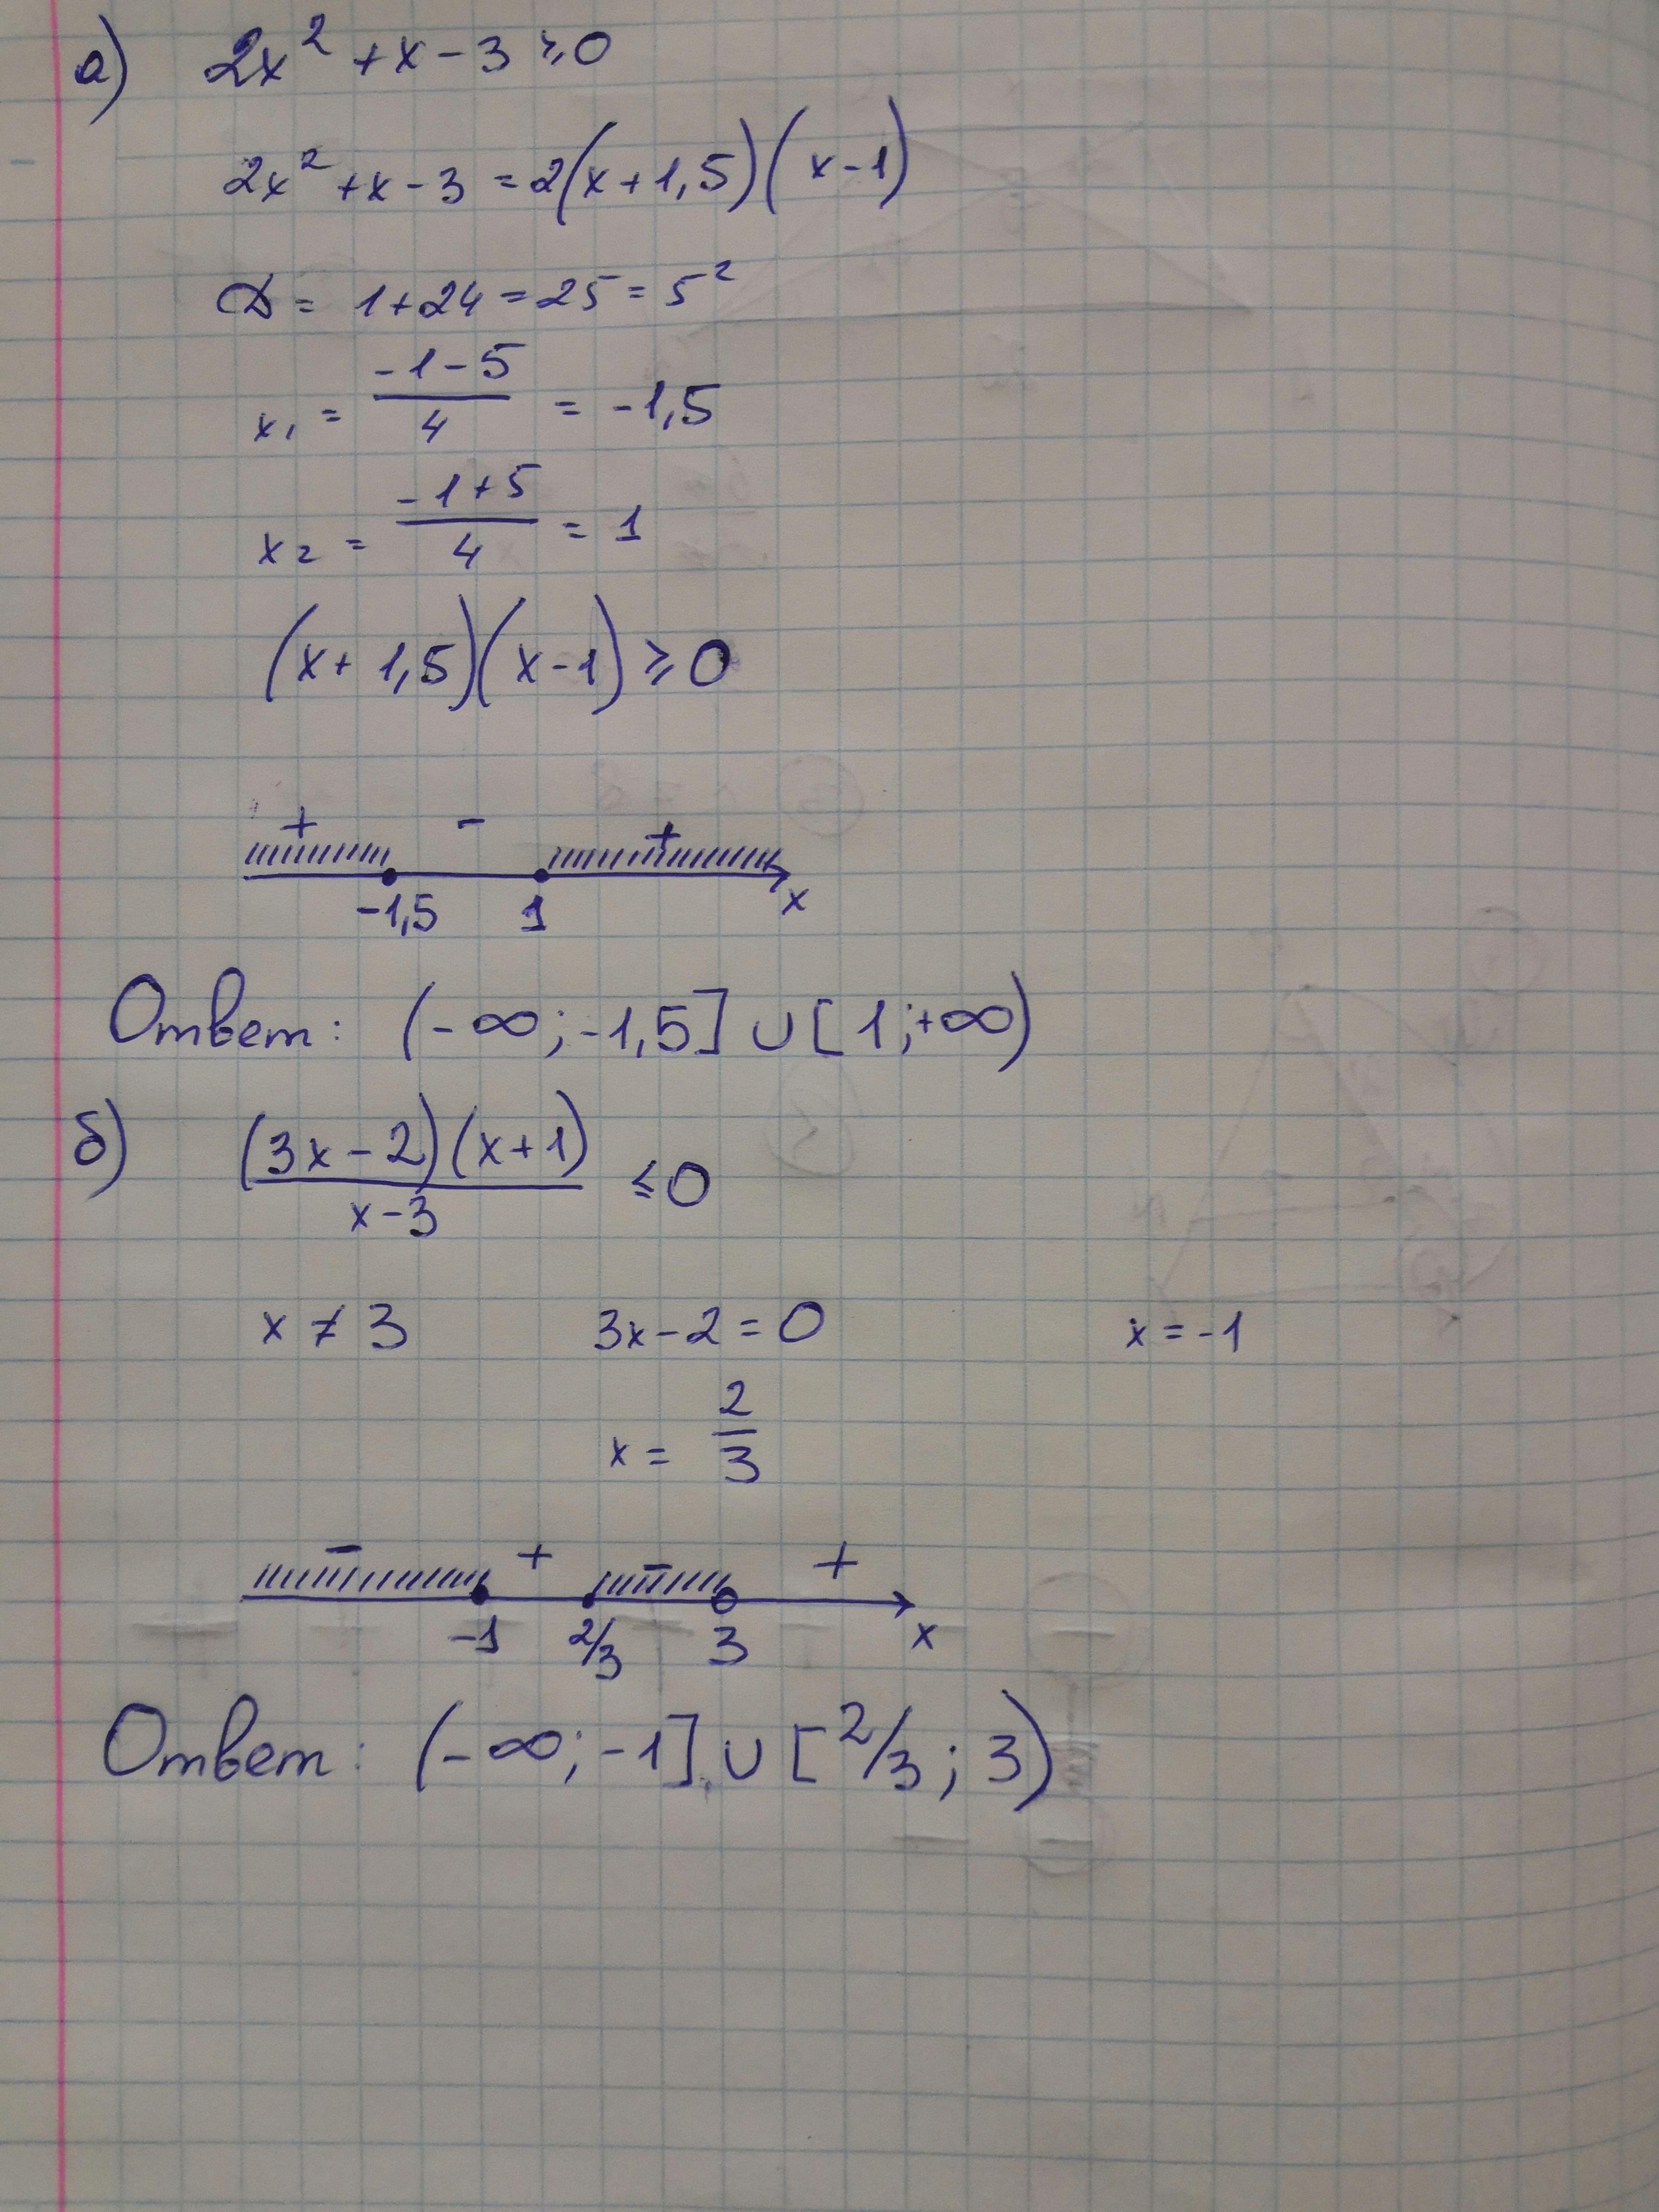 а) 2x² + x - 3 ≥ 0
2x² + x - 3 = 2(x + 1,5)(x - 1)
D = 1 + 24 = 25 = 5²
x₁ = (-1 - 5)/4 = -1,5
x₂ = (-1 + 5)/4 = 1
(x + 1,5)(x - 1) ≥ 0
+ - +
-1,5 1 x
Ответ: (-∞; -1,5] ∪ [1; +∞)
б) (3x - 2)(x + 1)/(x - 3) ≤ 0
x ≠ 3 3x - 2 = 0 x = -1
x = 2/3
- + - +
-1 2/3 3 x
Ответ: (-∞; -1] ∪ [2/3; 3)